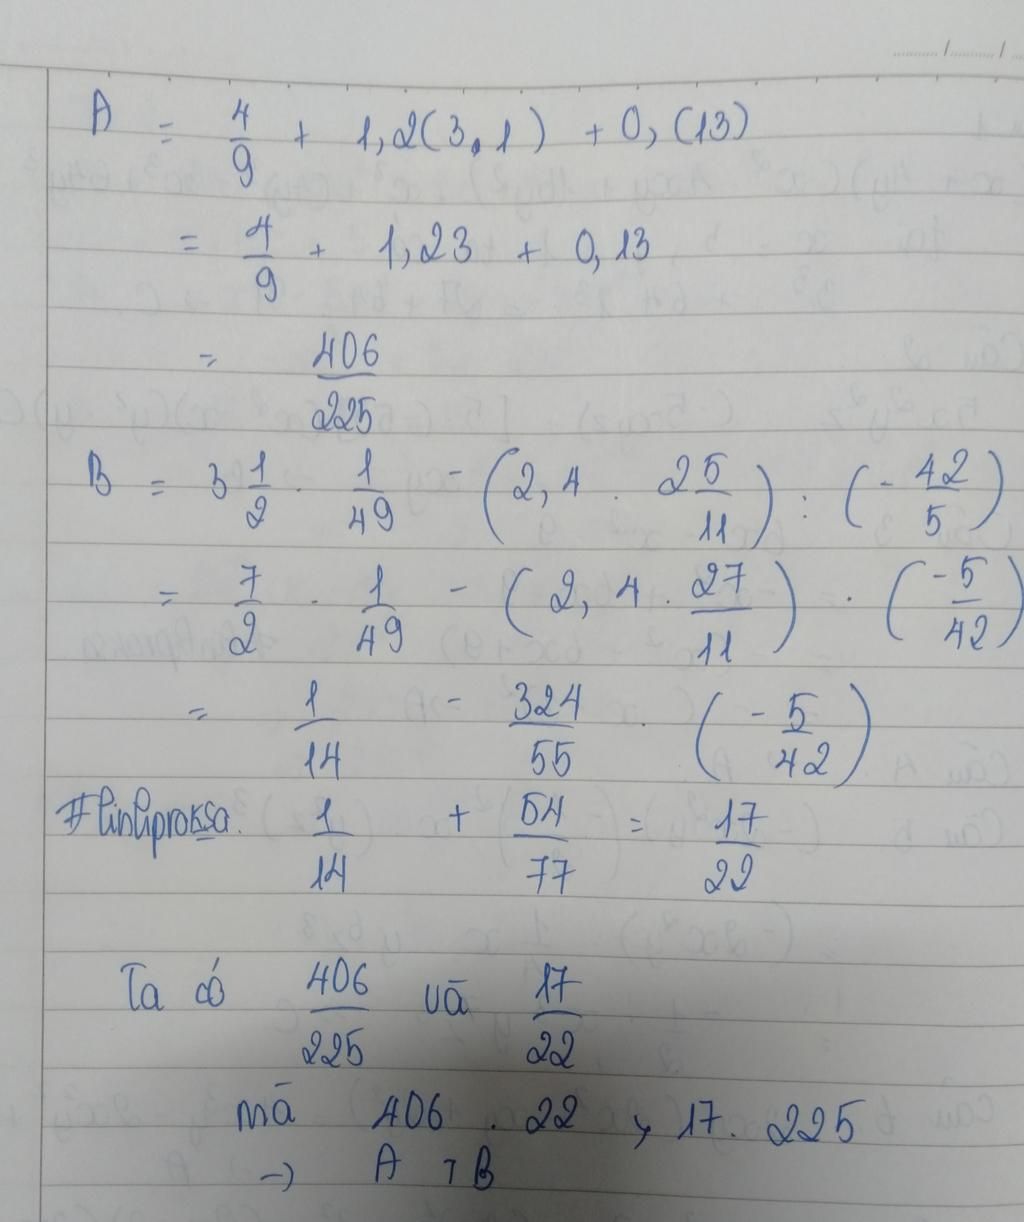 A = 4/9 + 1,2(3,1) + 0,(13)
= 4/9 + 1,23 + 0,13
= 406/225
B = 3 1/2 . 1/49 - (2,4 . 25/11) : (- 42/5)
= 7/2 . 1/49 - (2,4 . 27/11) . (-5/42)
= 1/14 - 324/55 . (-5/42)
#linhproksa. 1/14 + 54/77 = 17/22
Ta có 406/225 và 17/22
mà 406 . 22 > 17 . 225
→ A > B